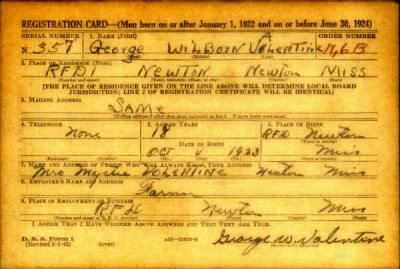 REGISTRATION CARD—(Men born on or after January 1, 1922 and on or before June 30, 1924)
SERIAL NUMBER 1. NAME (Print) ORDER NUMBER
N 357 George WILBORN VALENTINE
2. PLACE OF RESIDENCE (Print)
RFD1 NEWTON NEWTON MISS
[THE PLACE OF RESIDENCE GIVEN ON THE LINE ABOVE WILL DETERMINE LOCAL BOARD
JURISDICTION; LINE 2 OF REGISTRATION CERTIFICATE WILL BE IDENTICAL]
3. MAILING ADDRESS
SAME
4. TELEPHONE 5. AGE IN YEARS 6. PLACE OF BIRTH
None 18 RFD Newton
DATE OF BIRTH
OCT 4 1923 Miss
7. NAME AND ADDRESS OF PERSON WHO WILL ALWAYS KNOW YOUR ADDRESS
Mrs VALENTINE Newton Miss
8. EMPLOYER'S NAME AND ADDRESS
9. PLACE OF EMPLOYMENT OR BUSINESS
RFD Newton Miss
I AFFIRM THAT I HAVE VERIFIED ABOVE ANSWERS AND THAT THEY ARE TRUE.
D. S. S. Form 1
George W. Valentine